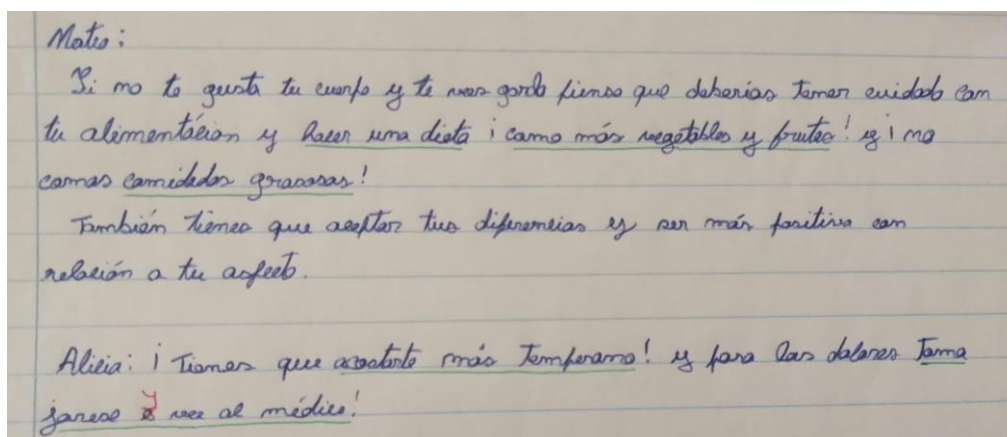 Mateo:
Si no te gusta tu cuerpo y te ves gordo pienso que deberias tener cuidado con
tu alimentácion y hacer una dieta ¡ come más vegetables y frutas! y ¡ no
comas comidedas grasosas!
También tienes que aceptar tus diferencias y ser más positivo con
relación a tu aspecto.
Alicia: ¡ Tienes que acostarte más Temprano! y para los dolores Toma
jarese y vee al médico!